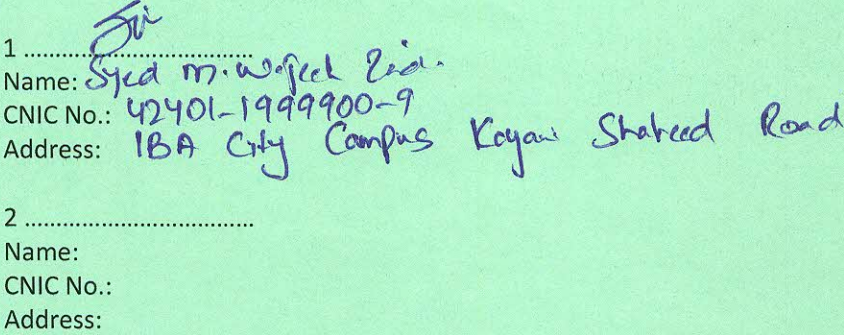 1 ....................................
Name: Syed M. Wajeeh
CNIC No.: 42401-1999900-9
Address: IBA City Campus Kayani Shaheed Road
2 ....................................
Name:
CNIC No.:
Address: